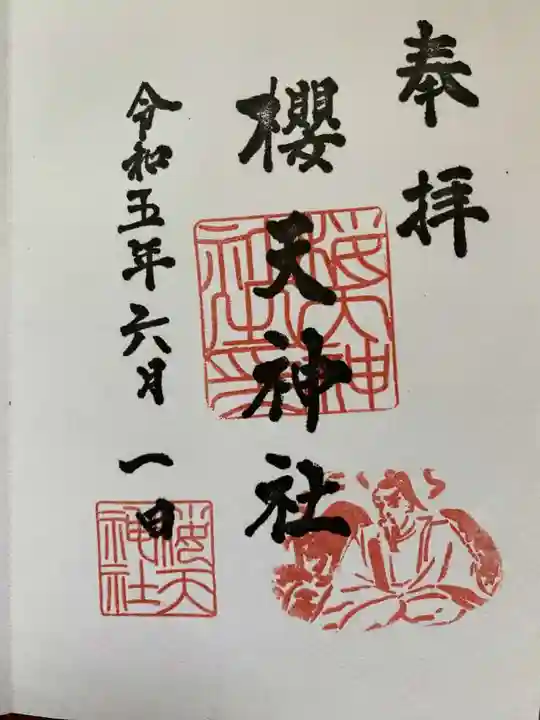 奉拝
櫻天神社
令和五年六月一日
櫻天神社印
櫻天神社